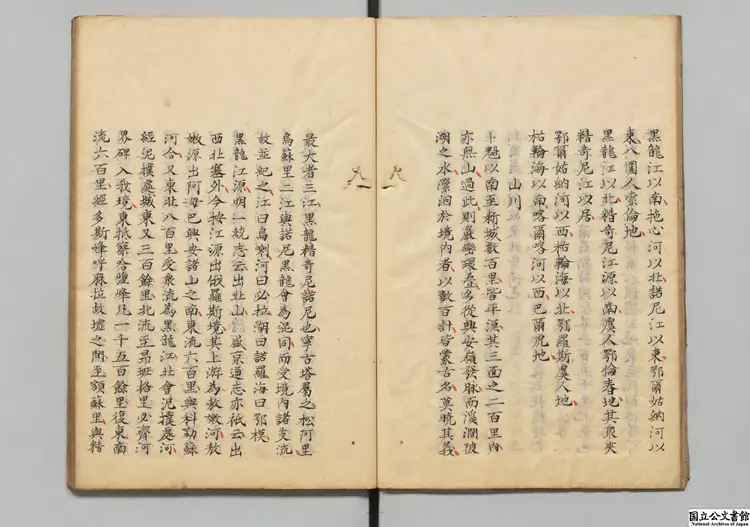 黑龍江以南拖心河以北諾尼江以東鄂爾姑納河以
東八圍人索倫地
黑龍江以北精奇尼江源以南虞人鄂倫春地其眾夾
精奇尼江以居
鄂爾姑納河以西枯輪海以北鄂羅斯虞人地
枯輪海以南喀爾喀河以西巴爾虎地
山川
卜魁以南至新城數百里皆平漠其三面之二百里內
亦無山過此則巖巒環疊多從興安嶺發脈而溪澗陂
湖之水瀠洄於境內者以數百計皆蒙古名莫曉其義
最大者三江黑龍精奇尼諾尼也寧古塔屬之松阿里
烏蘇里二江與諾尼黑龍會為混同而受境內諸支流
故並紀之江曰烏喇河曰必拉湖曰諾羅海曰鄂模
黑龍江源明一統志云出北山盛京通志亦祇云出
西北塞外今按江源出俄羅斯境其上游為敖嫩河敖
嫩源出阿海巴與安諾山之南東流六百里與科勒蘇
河合又東北八百里受眾流為黑龍江北會泥撲處河
經泥撲處城東又三百餘里北流至昂班格里必齊河
界碑入我境東抵察哈鹽峰凡一千五百餘里復東南
流六百里經多斯峰呼麻拉故墟之間至額蘇里與精